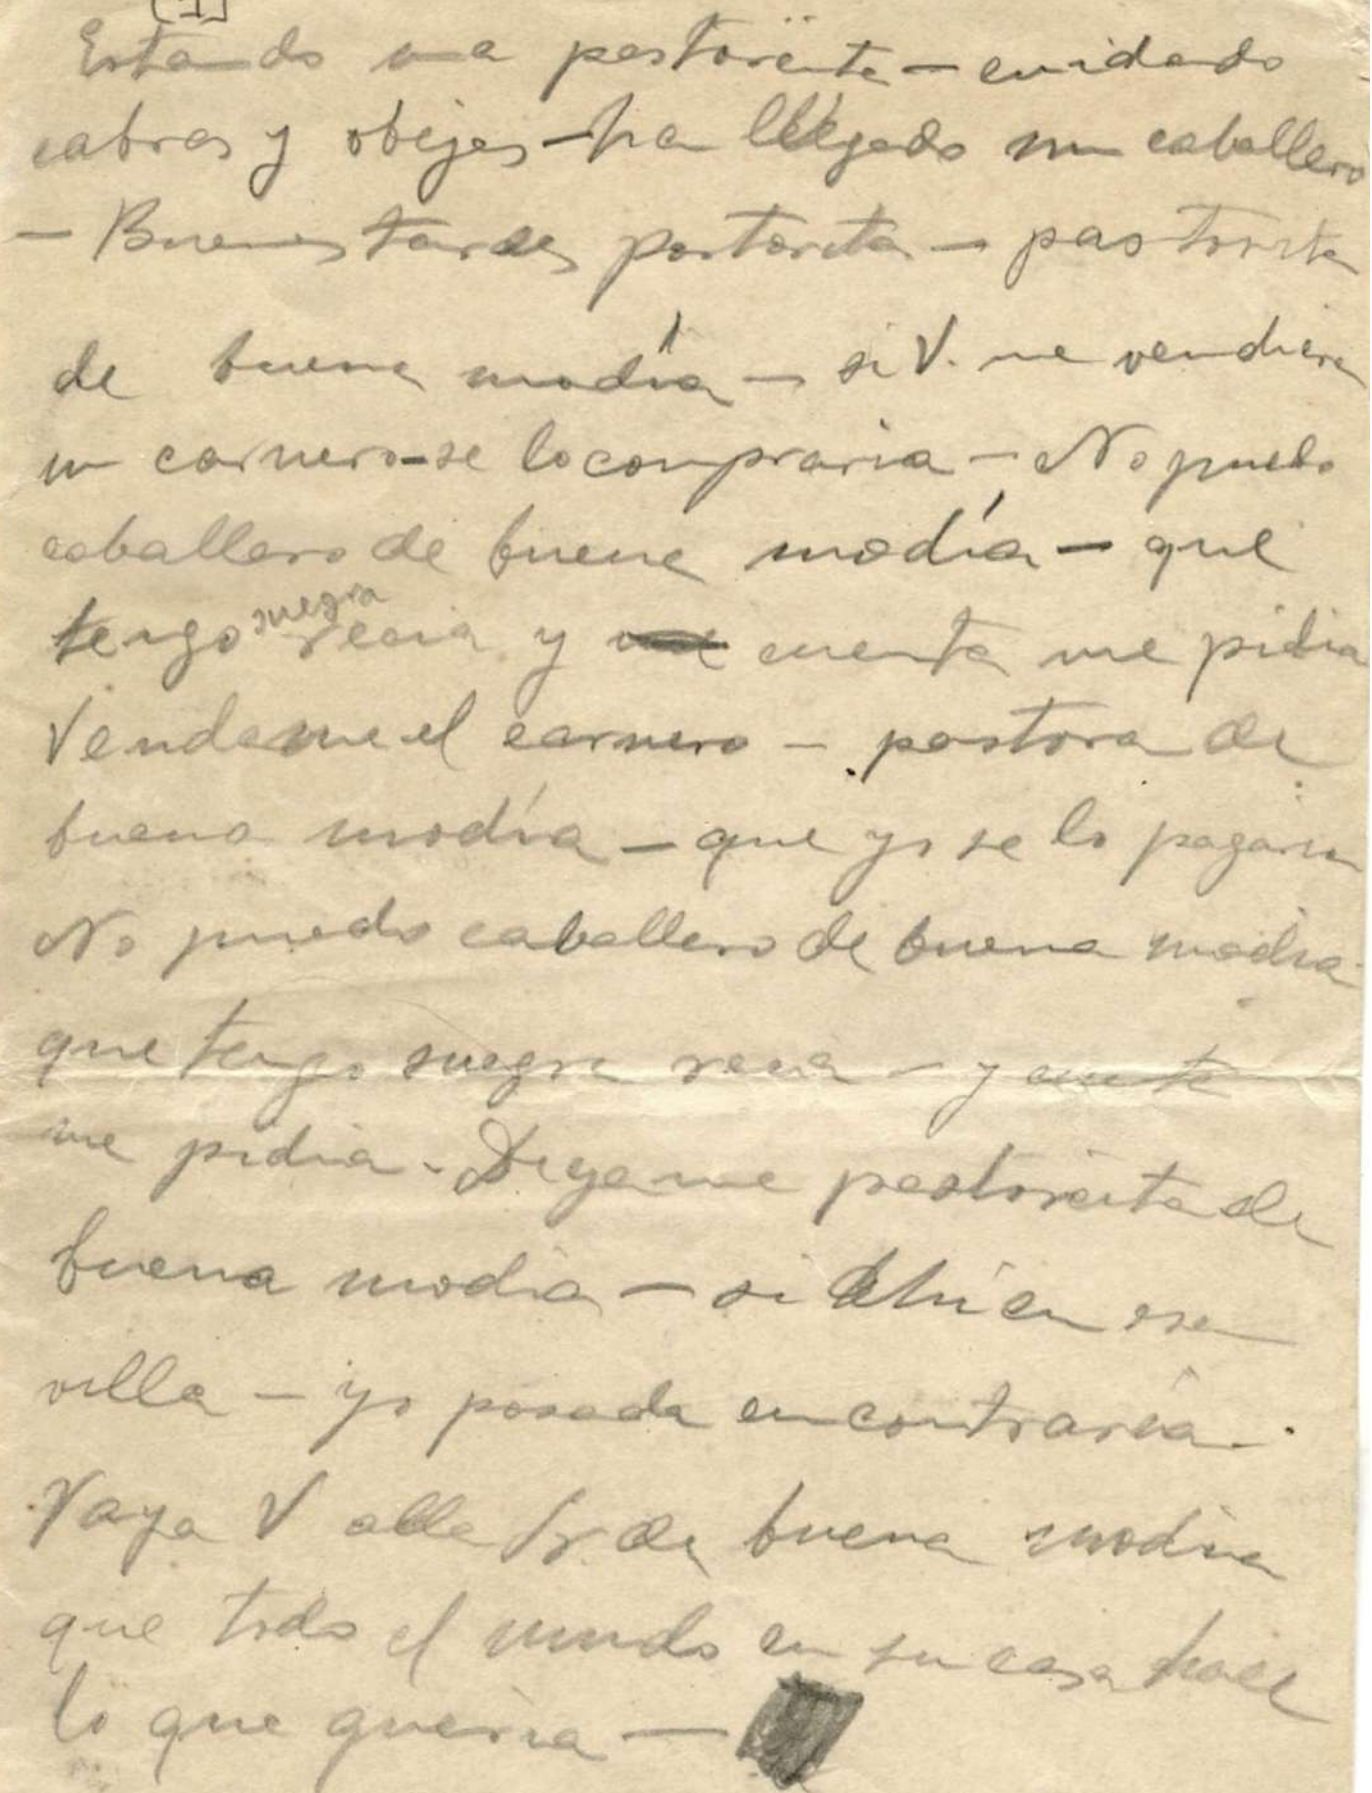 [1]
Estando una pastorcita - cuidado
cabras y obejas - ha llegado un caballero
- Buenas tardes pastorcita - pastorcita
de buena modía - si V. me vendiera
un carnero - se lo compraria - No puedo
caballero de buena modía - que
tengo suegra recia y cuenta me pidia
Vendame el carnero - pastora de
buena modía - que yo se lo pagaria
No puedo caballero de buena modia
que tengo suegra recia - y cuenta
me pidia. Digame pastorcita de
buena modia - si ahí en esa
villa - yo posada encontraria.
Vaya V alla de buena modia
que todo el mundo en su casa hace
lo que queria -